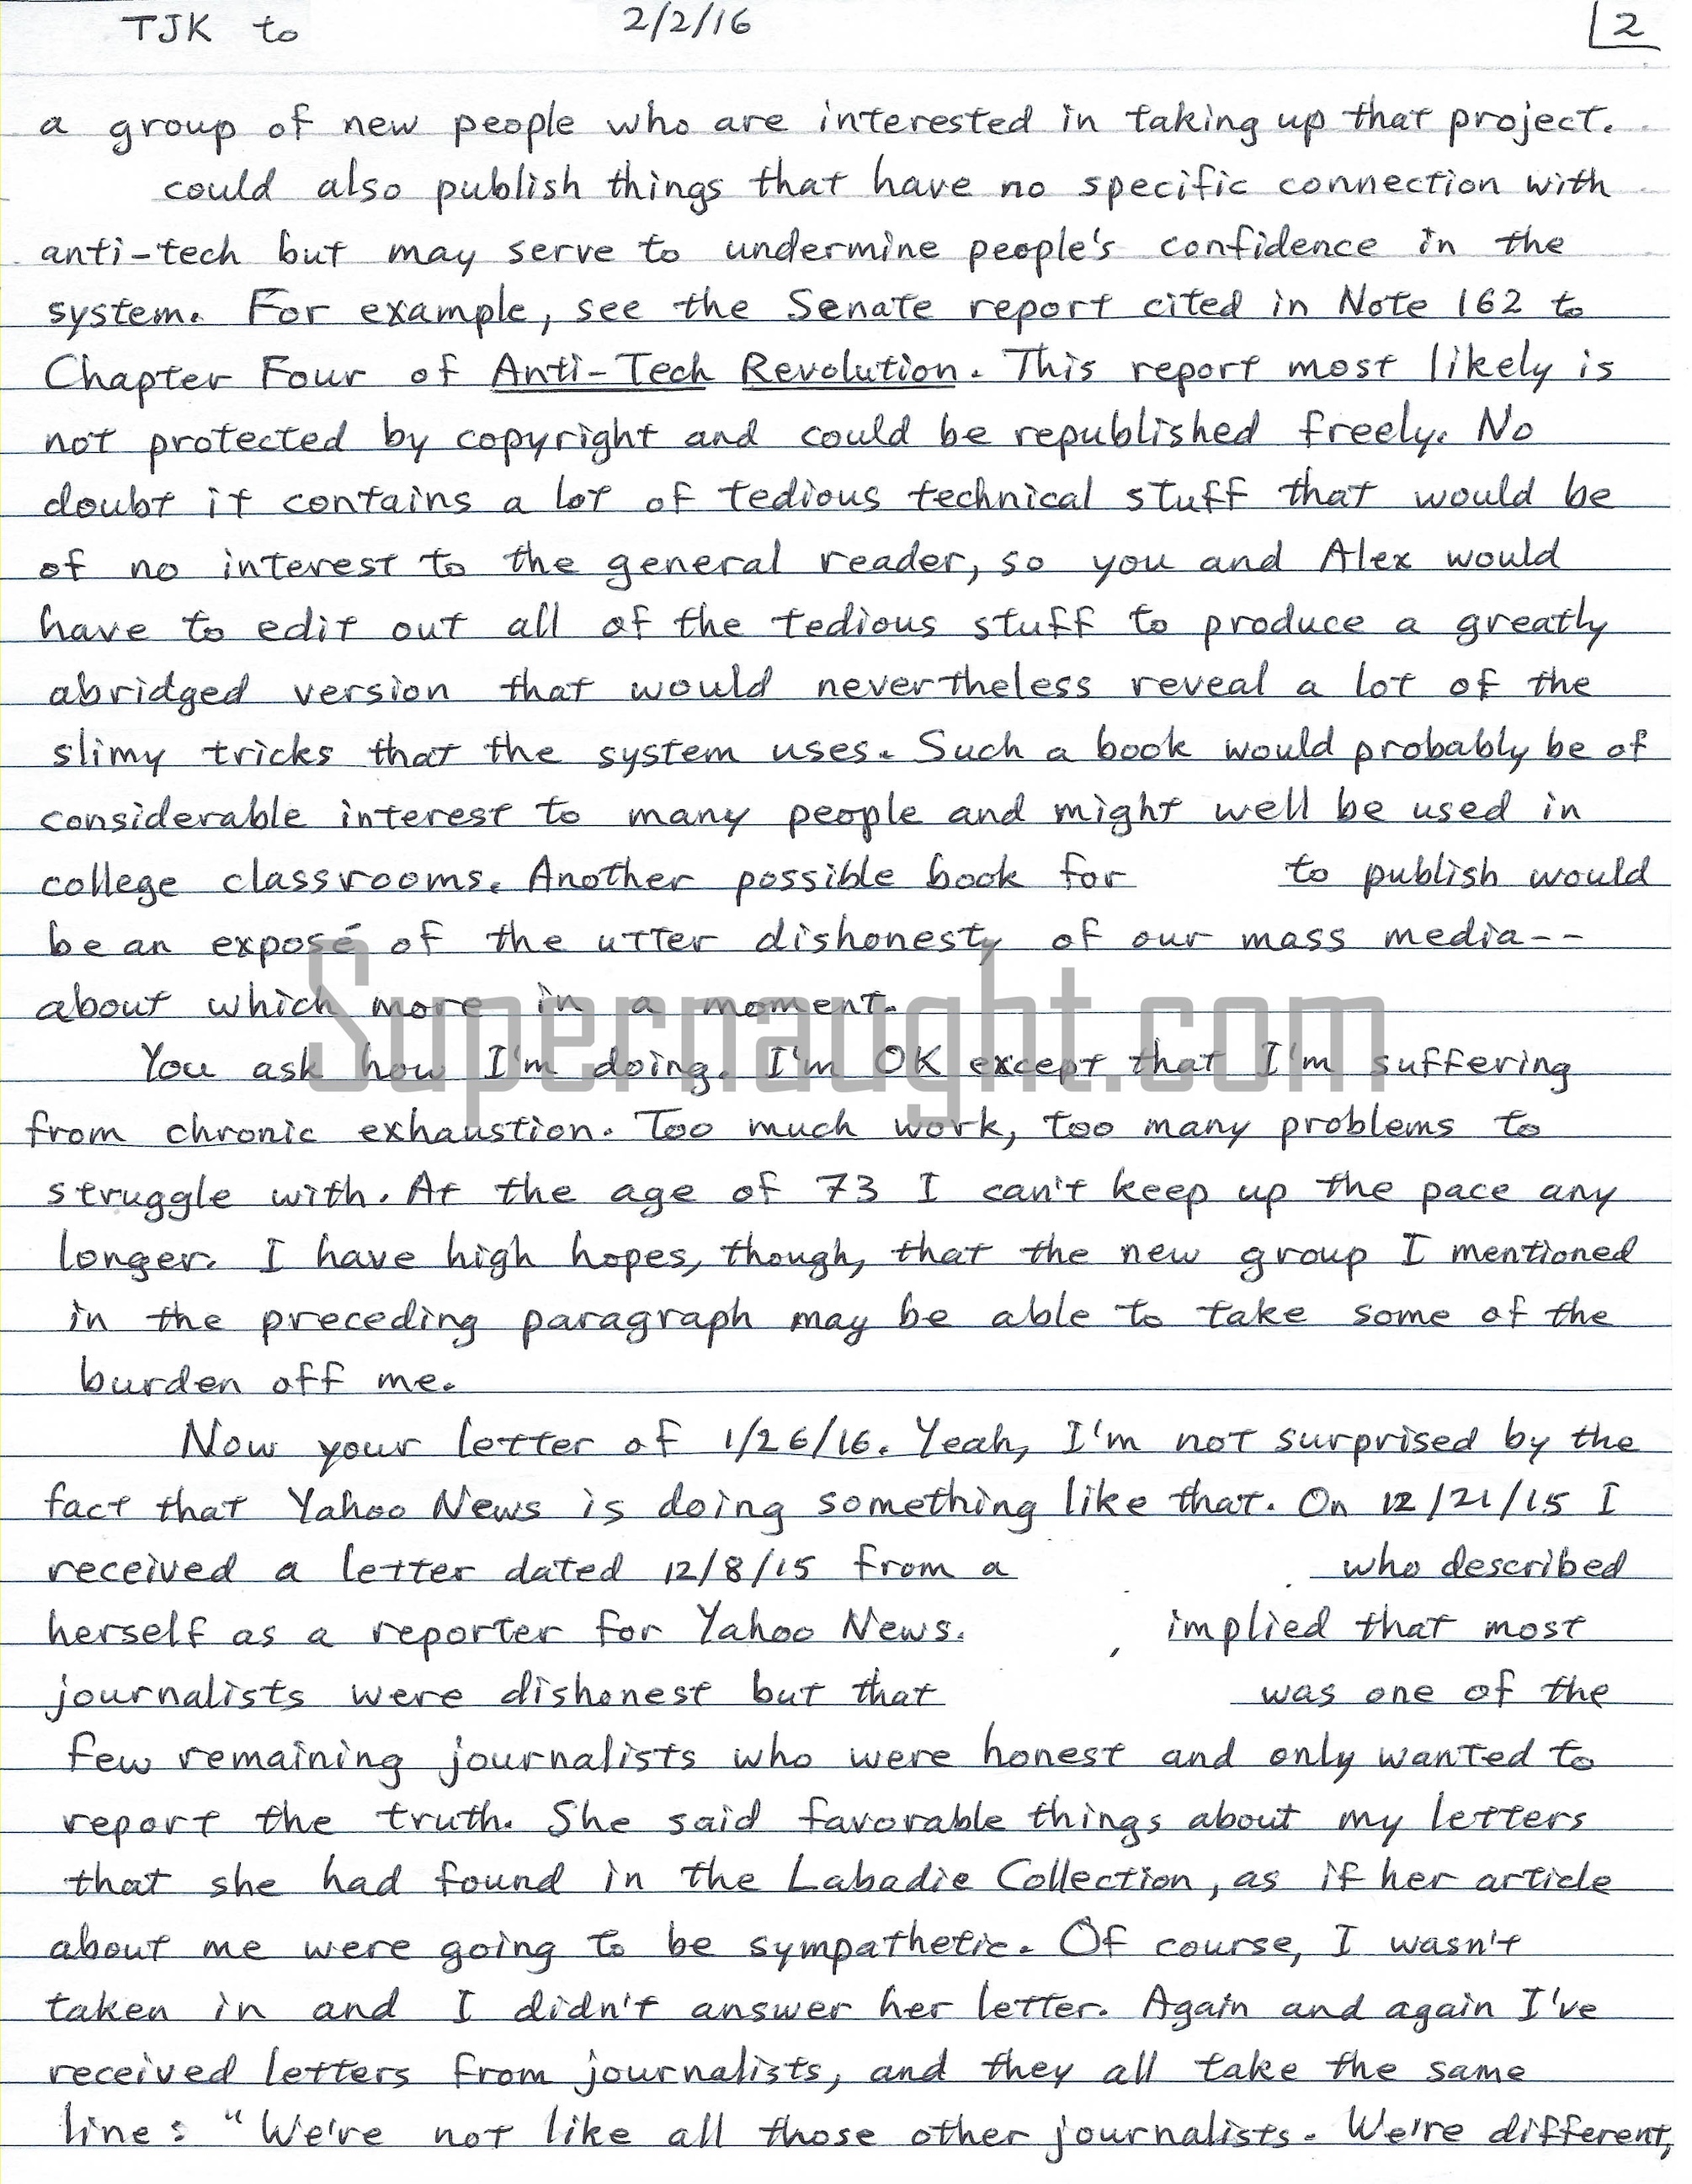 TJK to 2/2/16 2
a group of new people who are interested in taking up that project.
could also publish things that have no specific connection with
anti-tech but may serve to undermine people's confidence in the
system. For example, see the Senate report cited in Note 162 to
Chapter Four of Anti-Tech Revolution. This report most likely is
not protected by copyright and could be republished freely. No
doubt it contains a lot of tedious technical stuff that would be
of no interest to the general reader, so you and Alex would
have to edit out all of the tedious stuff to produce a greatly
abridged version that would nevertheless reveal a lot of the
slimy tricks that the system uses. Such a book would probably be of
considerable interest to many people and might well be used in
college classrooms. Another possible book for to publish would
be an exposé of the utter dishonesty of our mass media--
about which more in a moment.
Supernaught.com
You ask how I'm doing. I'm OK except that I'm suffering
from chronic exhaustion. Too much work, too many problems to
struggle with. At the age of 73 I can't keep up the pace any
longer. I have high hopes, though, that the new group I mentioned
in the preceding paragraph may be able to take some of the
burden off me.
Now your letter of 1/26/16. Yeah, I'm not surprised by the
fact that Yahoo News is doing something like that. On 12/21/15 I
received a letter dated 12/8/15 from a who described
herself as a reporter for Yahoo News. , implied that most
journalists were dishonest but that was one of the
few remaining journalists who were honest and only wanted to
report the truth. She said favorable things about my letters
that she had found in the Labadie Collection, as if her article
about me were going to be sympathetic. Of course, I wasn't
taken in and I didn't answer her letter. Again and again I've
received letters from journalists, and they all take the same
line: "We're not like all those other journalists. We're different,